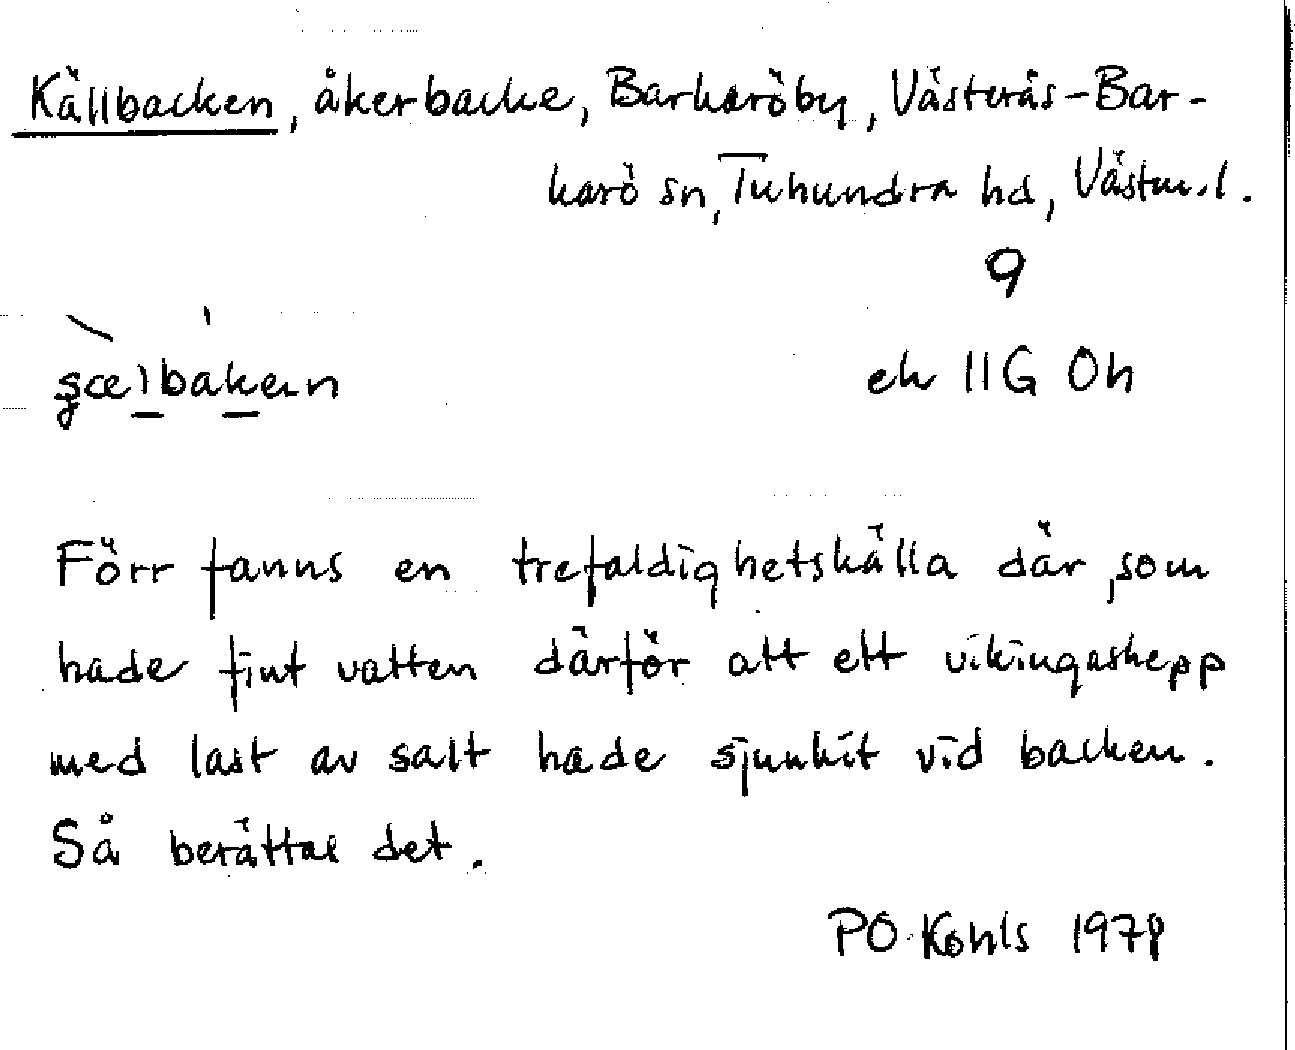 Källbacken, åkerbacke, Barkaröby, Västerås-Bar-
karö sn, Tuhundra hd, Västm.l.
9
ek 11G 0h
Förr fanns en trefaldighetskälla där, som
hade fint vatten därför att ett vikingaskepp
med last av salt hade sjunkit vid backen.
Så berättas det.
PO Kohls 1978